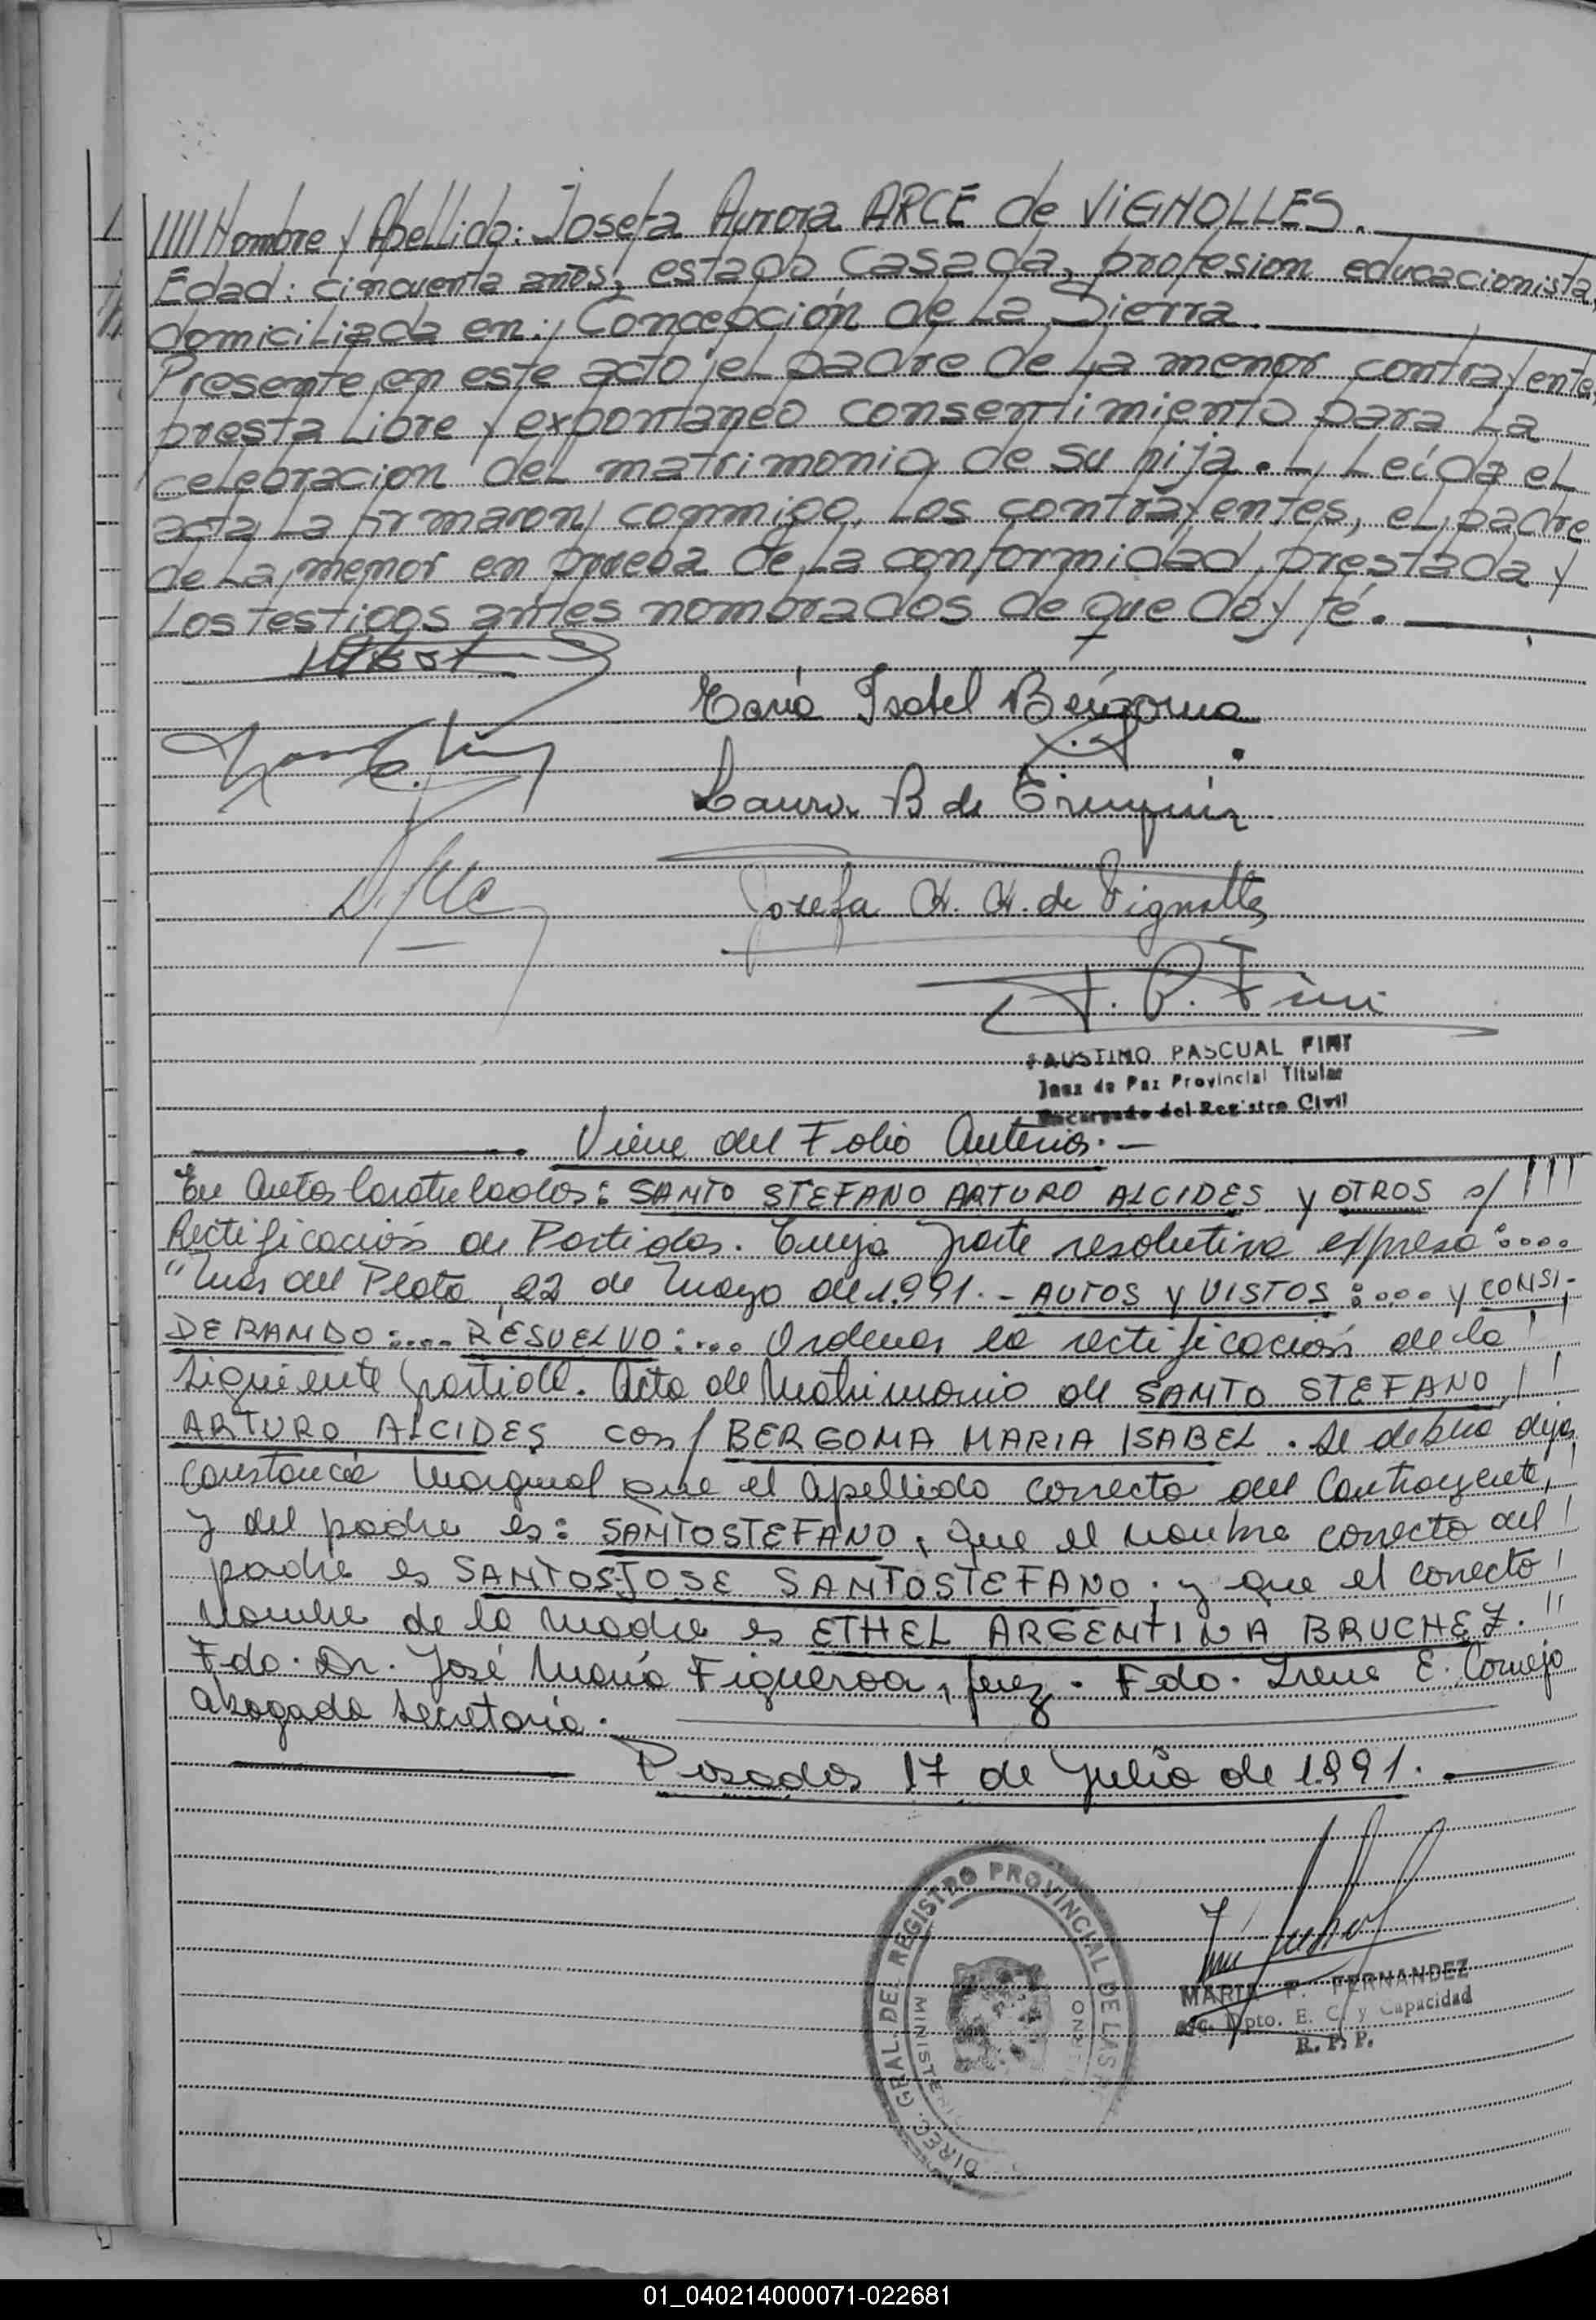 ////Nombre y Apellido: Josefa Aurora ARCE de VIGNOLLES.
Edad: cincuenta años, estado casada, profesion educacionista,
domiciliada en: Concepción de La Sierra.
Presente en este acto el padre de La menor contrayente,
presta Libre y expontaneo consentimiento para La
celebracion del matrimonio de su hija. Leída el
acta La firmaron conmigo, Los contrayentes, el padre
de La menor en prueba de La conformidad prestada y
Los testigos antes nombrados de que doy fé.
María Isabel Bergoma
Laura B de
Josefa A. A. de Vignolles
F. P. Fini
FAUSTINO PASCUAL FINI
Juez de Paz Provincial Titular
Encargado del Registro Civil
Viene del Folio Anterior.-
En Autos Caratulados: SANTO STEFANO ARTURO ALCIDES y OTROS s/
Rectificación de Partidas. Cuya parte resolutiva expresa:....
"Mar del Plata, 22 de Mayo de 1.991.- AUTOS y VISTOS:.... y CONSI-
DERANDO:.... RESUELVO:... Ordenar la rectificación de la
siguiente partida. Acta de Matrimonio de SANTO STEFANO
ARTURO ALCIDES con/ BERGOMA MARIA ISABEL. Se deberá dejar
constancia Marginal que el Apellido correcto del Contrayente,
y del padre es: SANTOSTEFANO, que el nombre correcto del
padre es SANTOS JOSE SANTOSTEFANO. y que el correcto
Nombre de la Madre es ETHEL ARGENTINA BRUCHEZ."
Fdo. Dr. José María Figueroa, juez. Fdo. Irene E. Cornejo
Abogada Secretaria.
Posadas 17 de Julio de 1.991.
DIREC. GRAL. DEL REGISTRO PROVINCIAL DE LAS
MINISTERIO
MARTA F. FERNANDEZ
Dpto. E. C. y Capacidad
R. P. P.
01_040214000071-022681